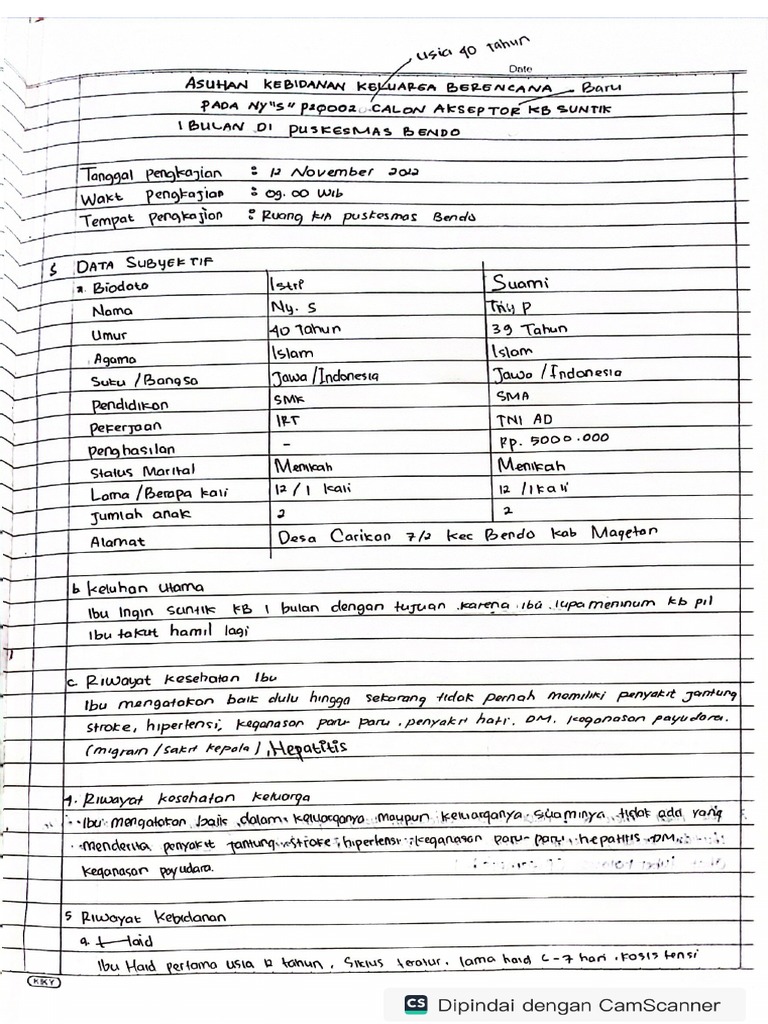 usia 40 tahun
Date
ASUHAN KEBIDANAN KELUARGA BERENCANA Baru
PADA NY"S" P20002 CALON AKSEPTOR KB SUNTIK
1 BULAN DI PUSKESMAS BENDO
Tanggal pengkajian : 12 November 2022
Wakt pengkajian : 09.00 Wib
Tempat pengkajian : Ruang KIA puskesmas Bendo
S DATA SUBYEKTIF
a. Biodata Istri Suami
Nama Ny. S P
Umur 40 Tahun 39 Tahun
Agama Islam Islam
Suku / Bangsa Jawa / Indonesia Jawa / Indonesia
Pendidikan SMK SMA
Pekerjaan IRT TNI AD
Penghasilan - Rp. 5000.000
Status Marital Menikah Menikah
Lama / Berapa kali 12 / 1 kali 12 / 1 kali
Jumlah anak 2 2
Alamat Desa Carikan 7/2 kec Bendo kab Magetan
b keluhan utama
Ibu Ingin suntik KB 1 bulan dengan tujuan karena ibu lupa meminum kb pil
Ibu takut hamil lagi
c. Riwayat kesehatan Ibu
Ibu mengatakan baik dulu hingga sekarang tidak pernah memiliki penyakit jantung
stroke, hipertensi, keganasan paru-paru, penyakit hati, DM, keganasan payudara.
(migrain / sakit kepala), Hepatitis
4. Riwayat kesehatan keluarga
Ibu mengatakan baik dalam keluarganya maupun keluarganya suaminya tidak ada yang
menderita penyakit jantung, stroke, hipertensi, keganasan paru-paru, hepatitis, DM,
keganasan payudara.
5 Riwayat Kebidanan
a. Haid
Ibu Haid pertama usia 12 tahun, siklus teratur, lama haid 6-7 hari, kosistensi
KKY
CS Dipindai dengan CamScanner